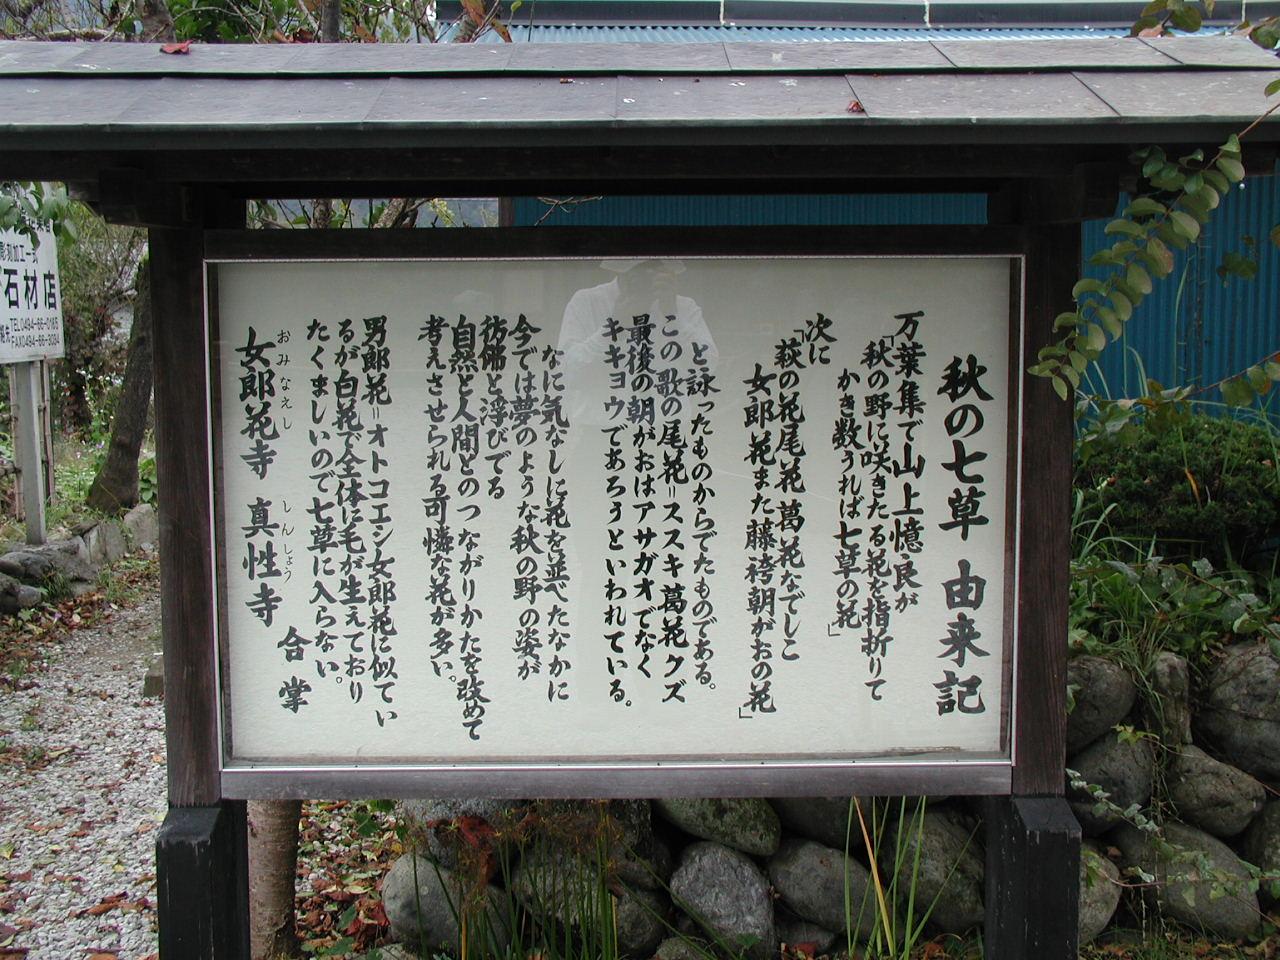 秋の七草 由来記
万葉集で山上憶良が
「秋の野に咲きたる花を指折りて
かき数うれば七草の花」
次に
「萩の花尾花葛花なでしこ
女郎花また藤袴朝がおの花」
と詠ったものからでたものである。
この歌の尾花=ススキ葛花クズ
最後の朝がおはアサガオでなく
キキョウであろうといわれている。
なに気なしに花を並べたなかに
今では夢のような秋の野の姿が
彷彿と浮びでる
自然と人間とのつながりかたを改めて
考えさせられる可憐な花が多い。
男郎花=オトコエシ女郎花に似てい
るが白花で全体に毛が生えており
たくましいので七草に入らない。
おみなえし しんしょう
女郎花寺 真性寺
合掌
彫刻加工一式
石材店
TEL0494-66-0185
FAX0494-66-3034